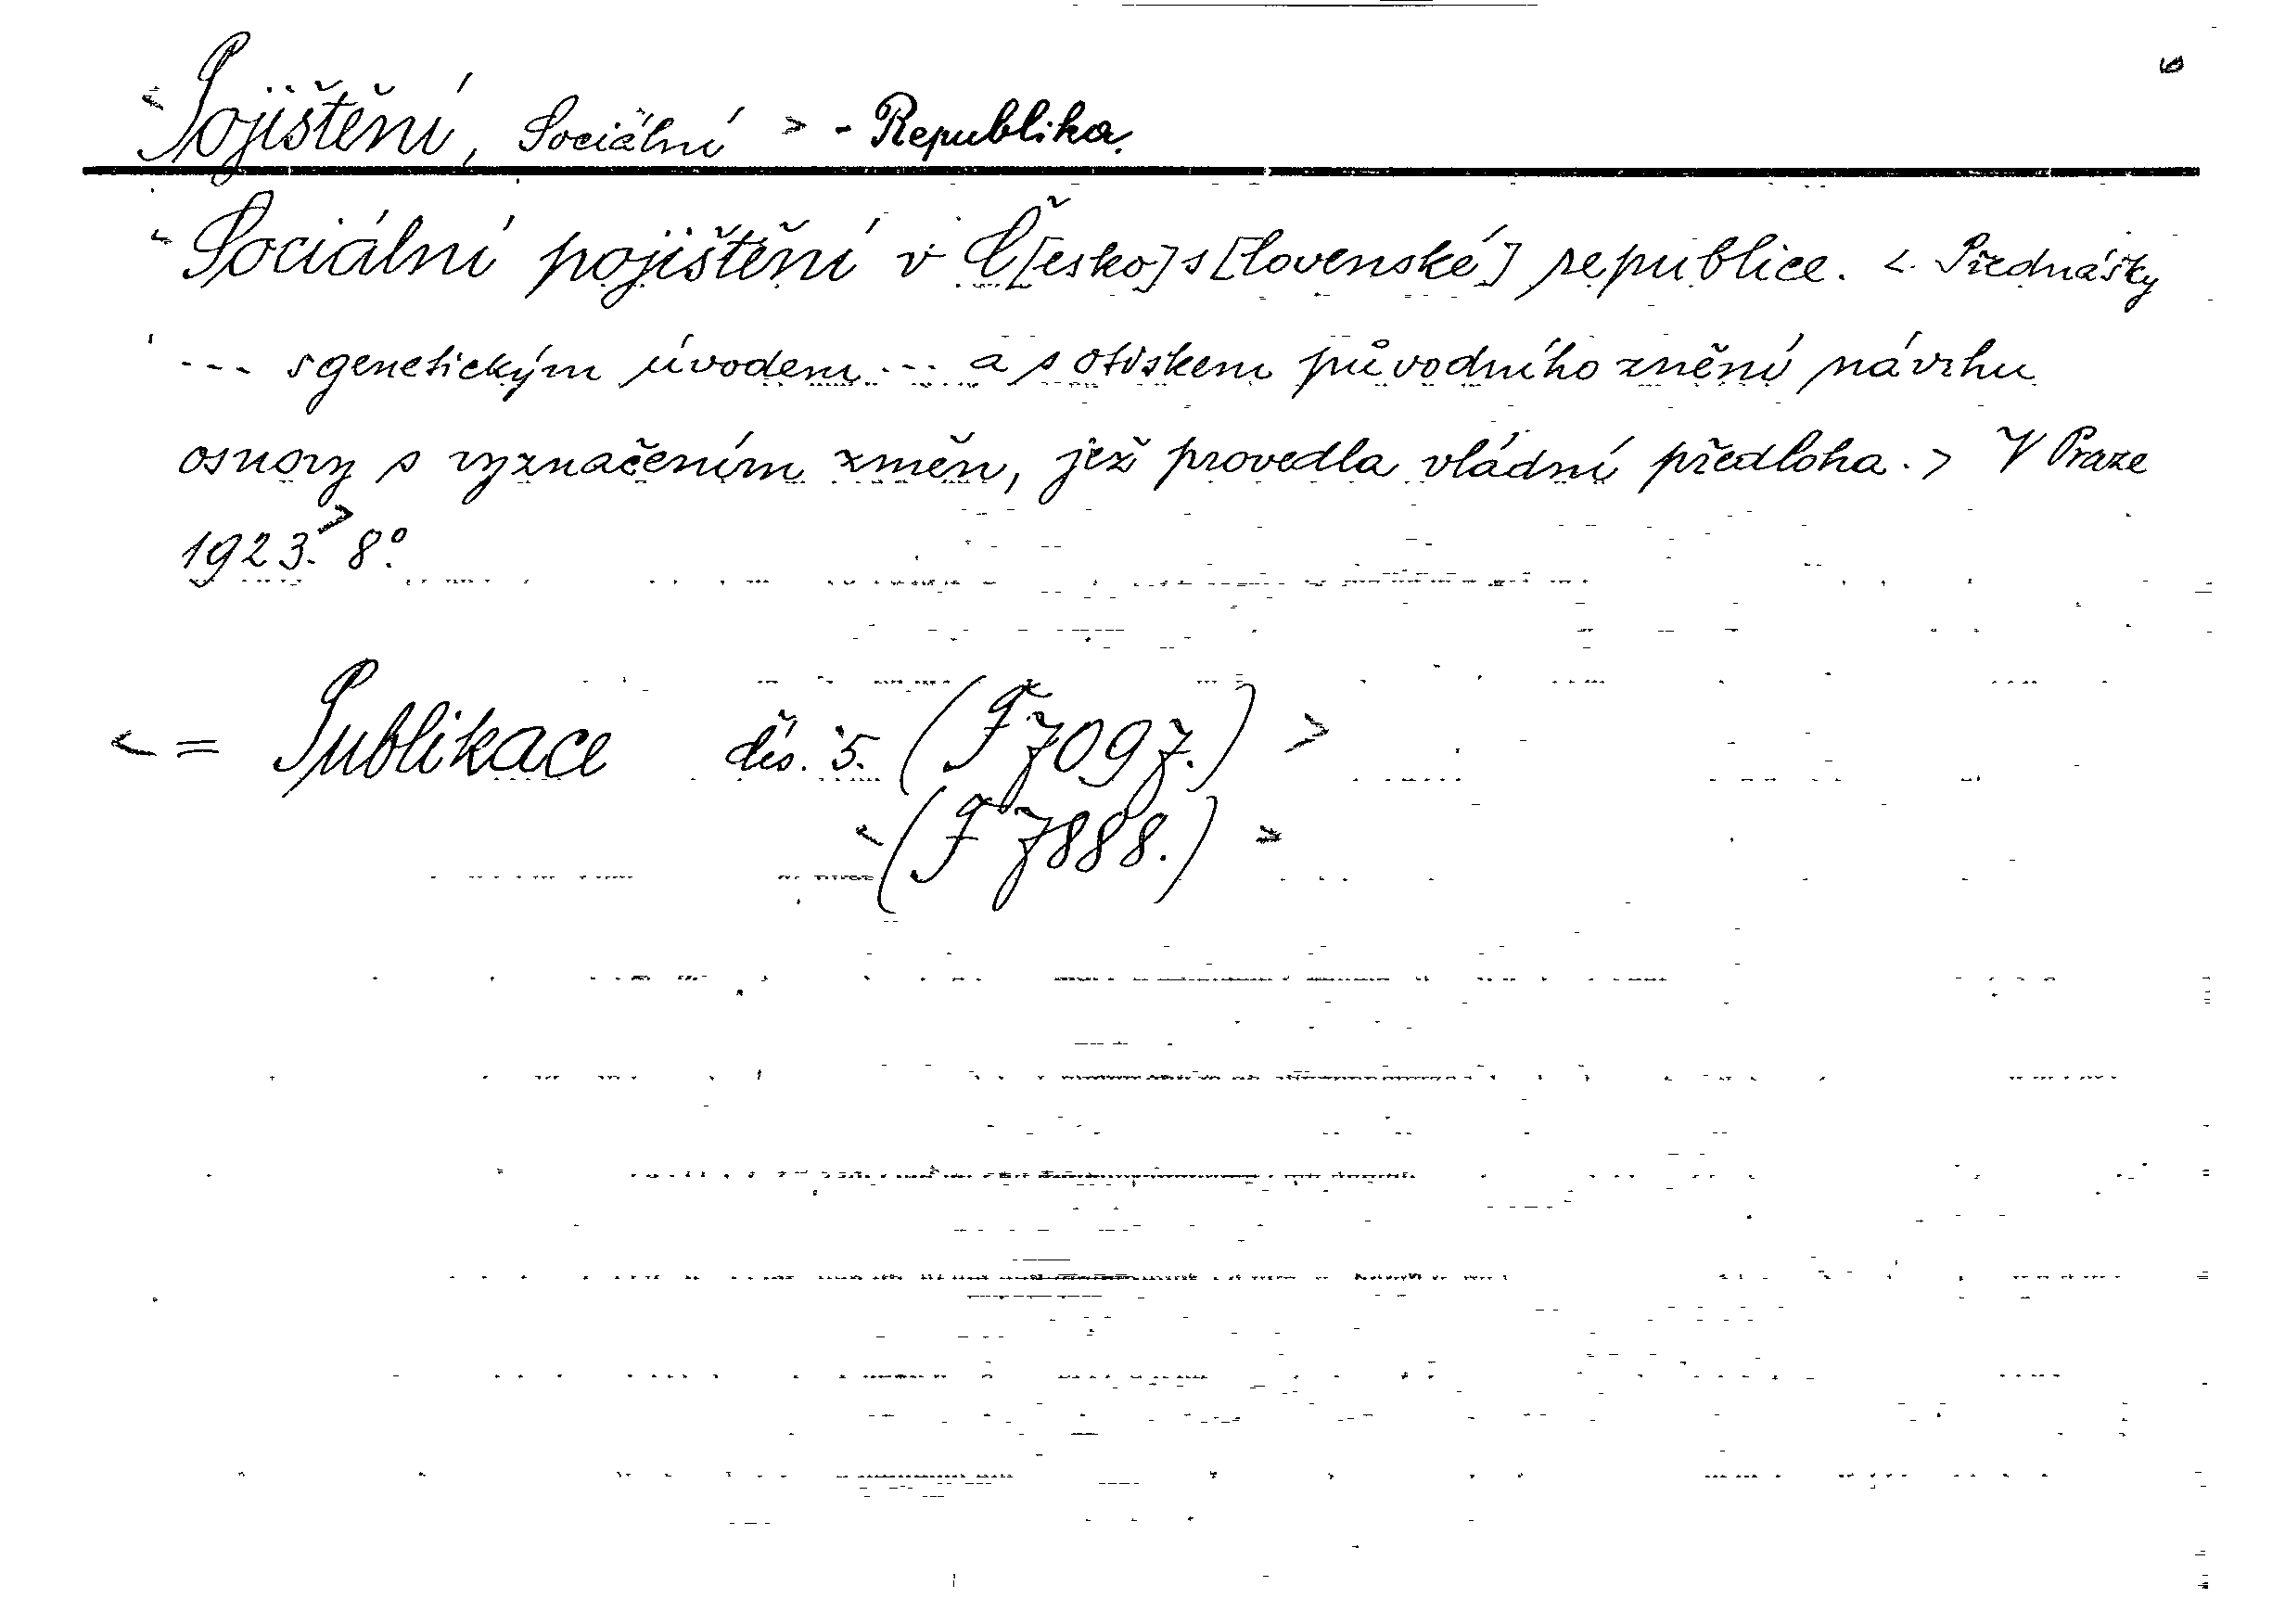 < Pojištění, Sociální > - Republika.
< Sociální pojištění v Č[esko]s[lovenské] republice. < Přednášky
--- s genetickým úvodem ... a s otiskem původního znění návrhu
osnovy s vyznačením změn, jež provedla vládní předloha. > V Praze
1923. > 8°.
< = Publikace čís. 5. (F 7097.) >
< (F 7888.) >